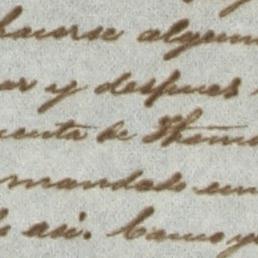 hacerse algun
ar y despues
uenta de Thom
mandado un
asi. Como y